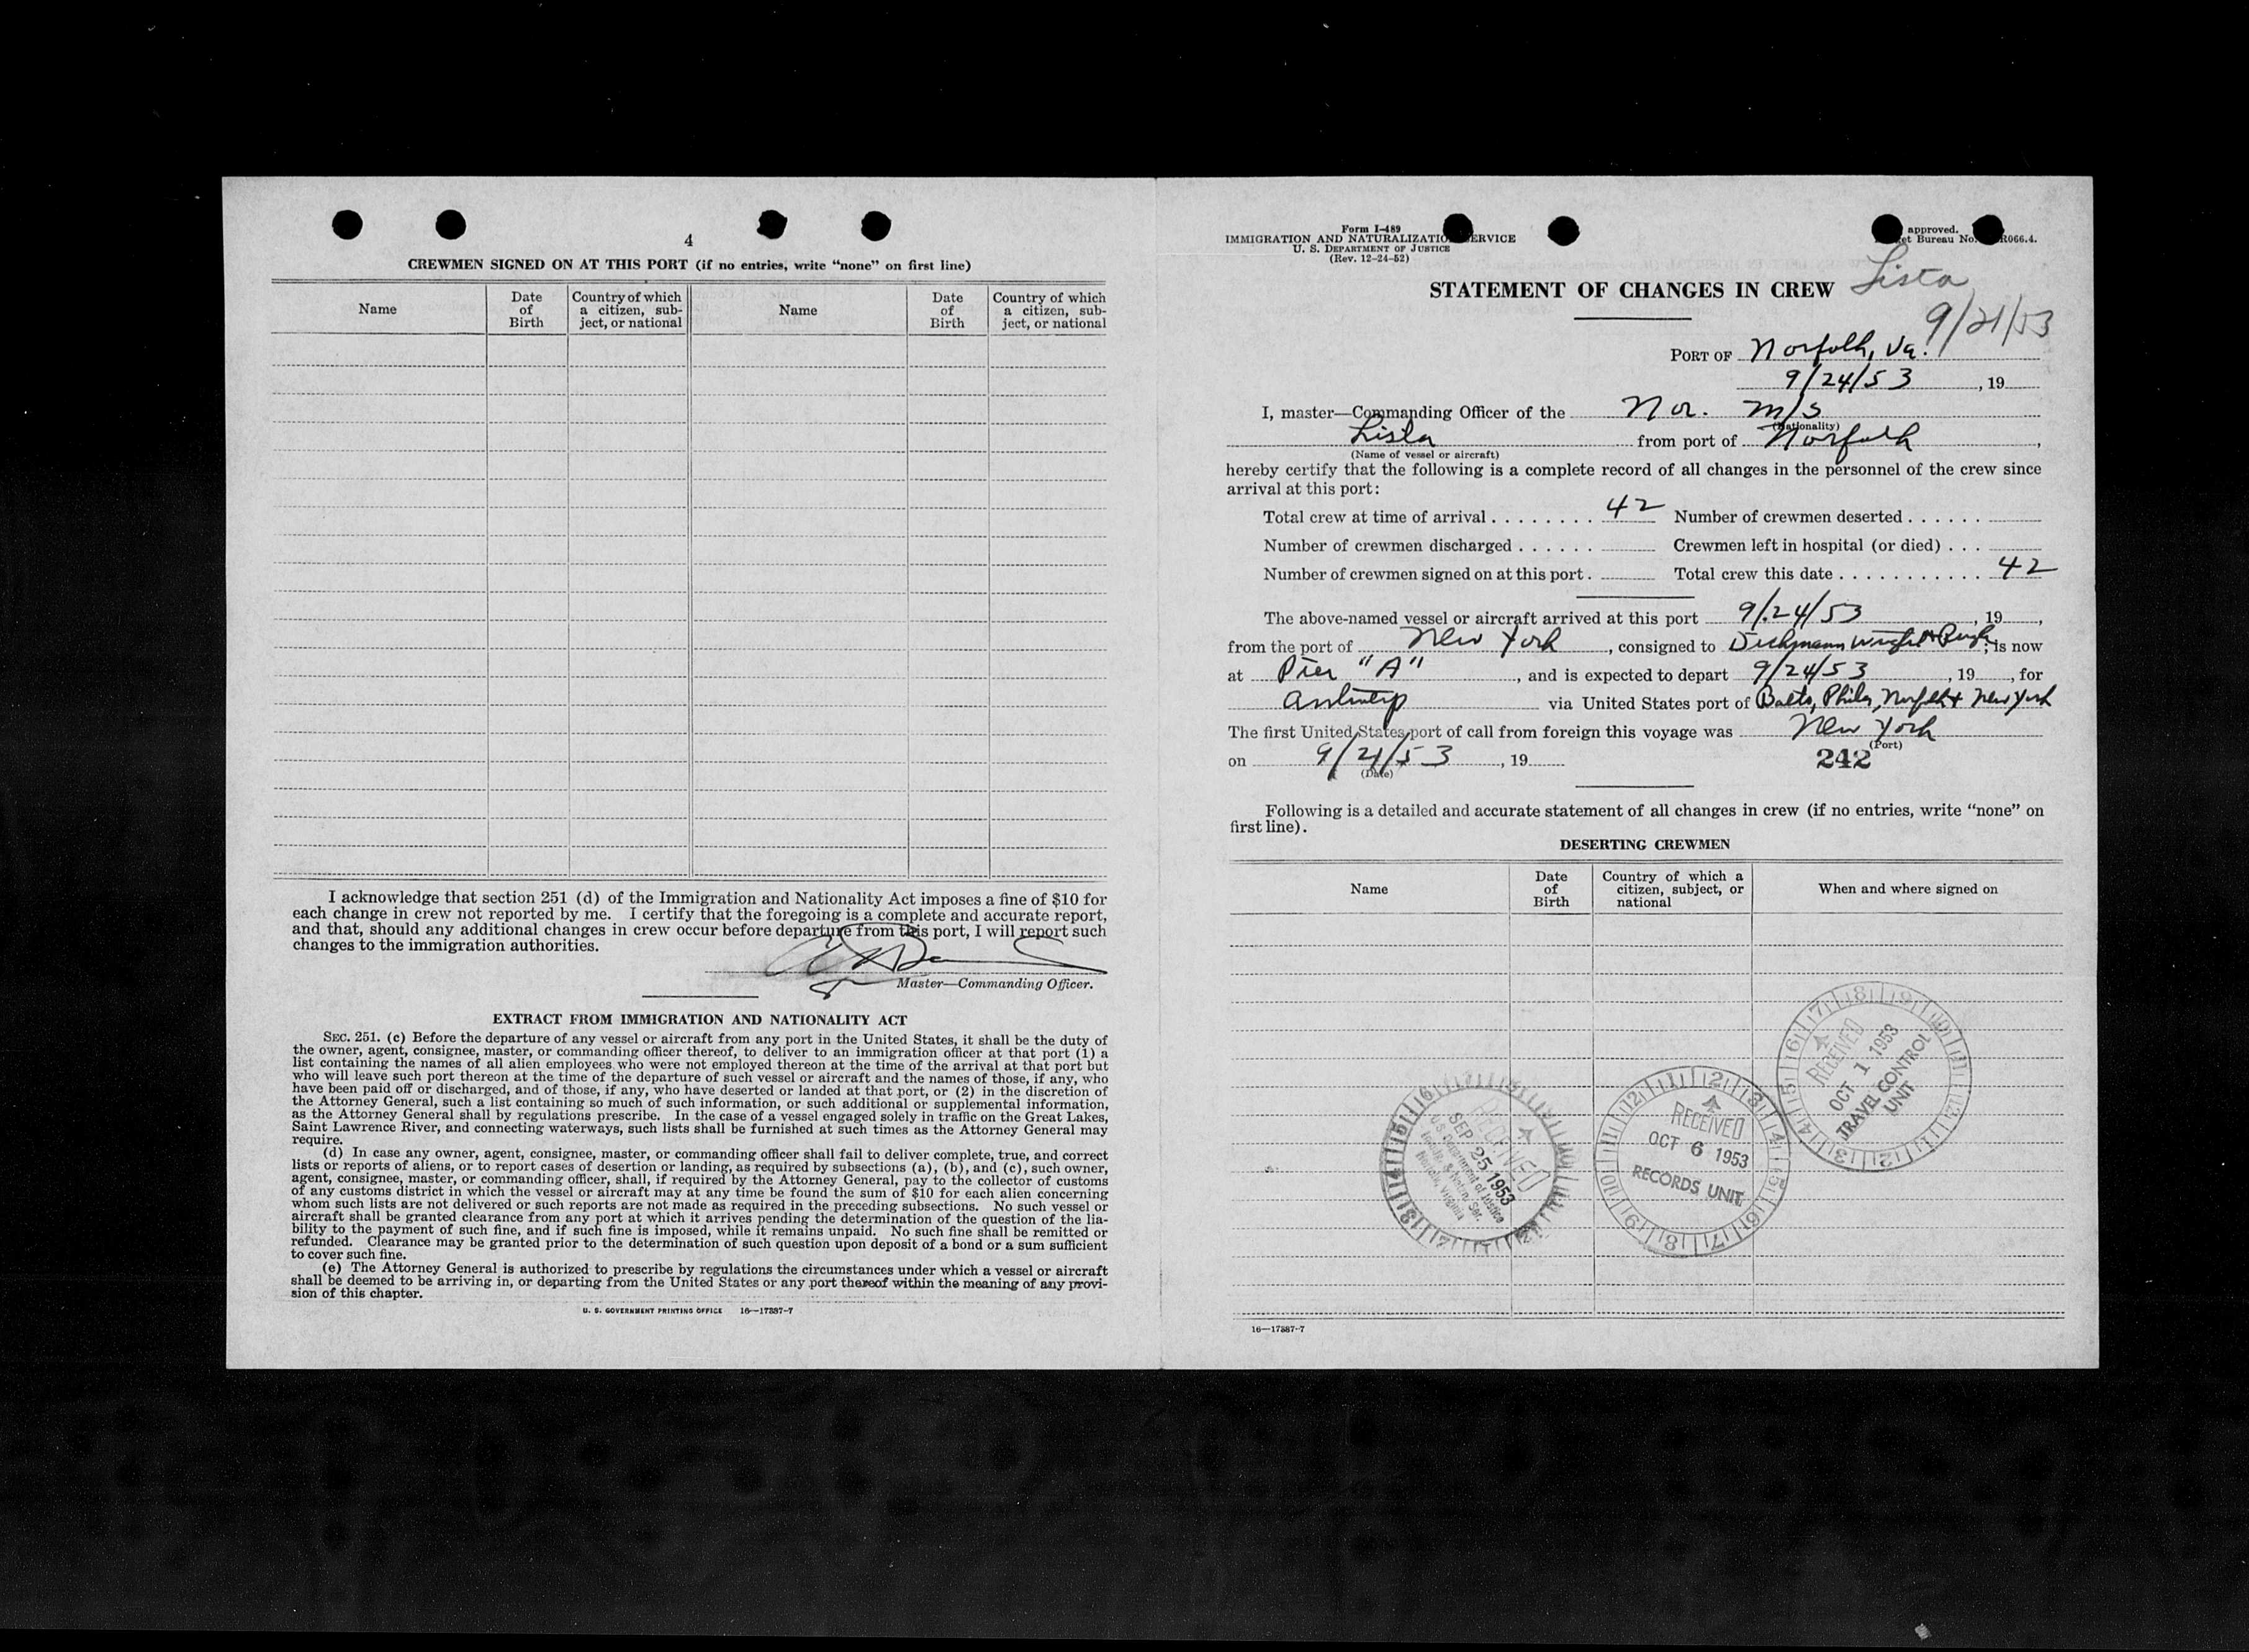 4
CREWMEN SIGNED ON AT THIS PORT (if no entries, write “none” on first line)
Name
Date of Birth
Country of which a citizen, sub-ject, or national
Name
Date of Birth
Country of which a citizen, sub-ject, or national
I acknowledge that section 251 (d) of the Immigration and Nationality Act imposes a fine of $10 for
each change in crew not reported by me. I certify that the foregoing is a complete and accurate report,
and that, should any additional changes in crew occur before departure from this port, I will report such
changes to the immigration authorities.
Master—Commanding Officer.
EXTRACT FROM IMMIGRATION AND NATIONALITY ACT
SEC. 251. (c) Before the departure of any vessel or aircraft from any port in the United States, it shall be the duty of
the owner, agent, consignee, master, or commanding officer thereof, to deliver to an immigration officer at that port (1) a
list containing the names of all alien employees who were not employed thereon at the time of the arrival at that port but
who will leave such port thereon at the time of the departure of such vessel or aircraft and the names of those, if any, who
have been paid off or discharged, and of those, if any, who have deserted or landed at that port, or (2) in the discretion of
the Attorney General, such a list containing so much of such information, or such additional or supplemental information,
as the Attorney General shall by regulations prescribe. In the case of a vessel engaged solely in traffic on the Great Lakes,
Saint Lawrence River, and connecting waterways, such lists shall be furnished at such times as the Attorney General may
require.
(d) In case any owner, agent, consignee, master, or commanding officer shall fail to deliver complete, true, and correct
lists or reports of aliens, or to report cases of desertion or landing, as required by subsections (a), (b), and (c), such owner,
agent, consignee, master, or commanding officer, shall, if required by the Attorney General, pay to the collector of customs
of any customs district in which the vessel or aircraft may at any time be found the sum of $10 for each alien concerning
whom such lists are not delivered or such reports are not made as required in the preceding subsections. No such vessel or
aircraft shall be granted clearance from any port at which it arrives pending the determination of the question of the lia-
bility to the payment of such fine, and if such fine is imposed, while it remains unpaid. No such fine shall be remitted or
refunded. Clearance may be granted prior to the determination of such question upon deposit of a bond or a sum sufficient
to cover such fine.
(e) The Attorney General is authorized to prescribe by regulations the circumstances under which a vessel or aircraft
shall be deemed to be arriving in, or departing from the United States or any port thereof within the meaning of any provi-
sion of this chapter.
U. S. GOVERNMENT PRINTING OFFICE 16—17387-7
Form I-489
IMMIGRATION AND NATURALIZATION SERVICE
U. S. DEPARTMENT OF JUSTICE
(Rev. 12-24-52)
approved.
et Bureau No. R066.4.
STATEMENT OF CHANGES IN CREW
Lista
9/21/53
PORT OF Norfolk, Va.
9/24/53, 19
I, master—Commanding Officer of the Nor. m/s
(Nationality)
Lista from port of Norfolk,
(Name of vessel or aircraft)
hereby certify that the following is a complete record of all changes in the personnel of the crew since
arrival at this port:
Total crew at time of arrival . . . . . . . . 42 Number of crewmen deserted . . . . . .
Number of crewmen discharged . . . . . . Crewmen left in hospital (or died) . . .
Number of crewmen signed on at this port . Total crew this date . . . . . . . . . . . 42
The above-named vessel or aircraft arrived at this port 9/24/53, 19,
from the port of New York, consigned to Dichmann Wright & Pugh; is now
at Pier "A", and is expected to depart 9/24/53, 19, for
Antwerp via United States port of Balto, Phila, Norfolk & New York
The first United States port of call from foreign this voyage was New York
(Port)
on 9/21/53, 19
(Date)
242
Following is a detailed and accurate statement of all changes in crew (if no entries, write “none” on
first line).
DESERTING CREWMEN
Name
Date of Birth
Country of which a citizen, subject, or national
When and where signed on
RECEIVED
OCT 1 1953
TRAVEL CONTROL
UNIT
RECEIVED
OCT 6 1953
RECORDS UNIT
RECEIVED
SEP 25 1953
U.S. Department of Justice
Immig. & Natrn. Ser.
Norfolk, Virginia
16—17387-7